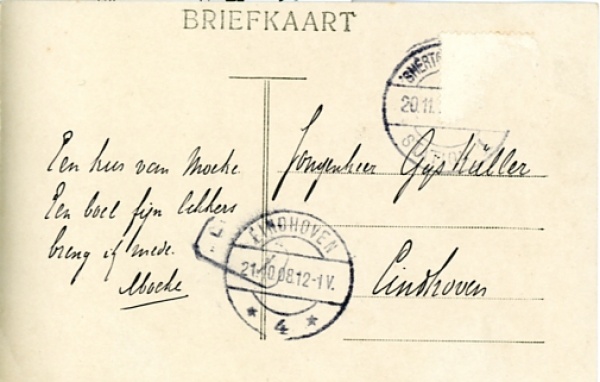 BRIEFKAART
'SHERT
20.11
Een kus van Moeke
Een boel fijn lekkers
breng ik mede.
Moeke
Jongenheer Gijs Küller
Eindhoven
EINDHOVEN
21. 0 08.12-1V.
* 4 *